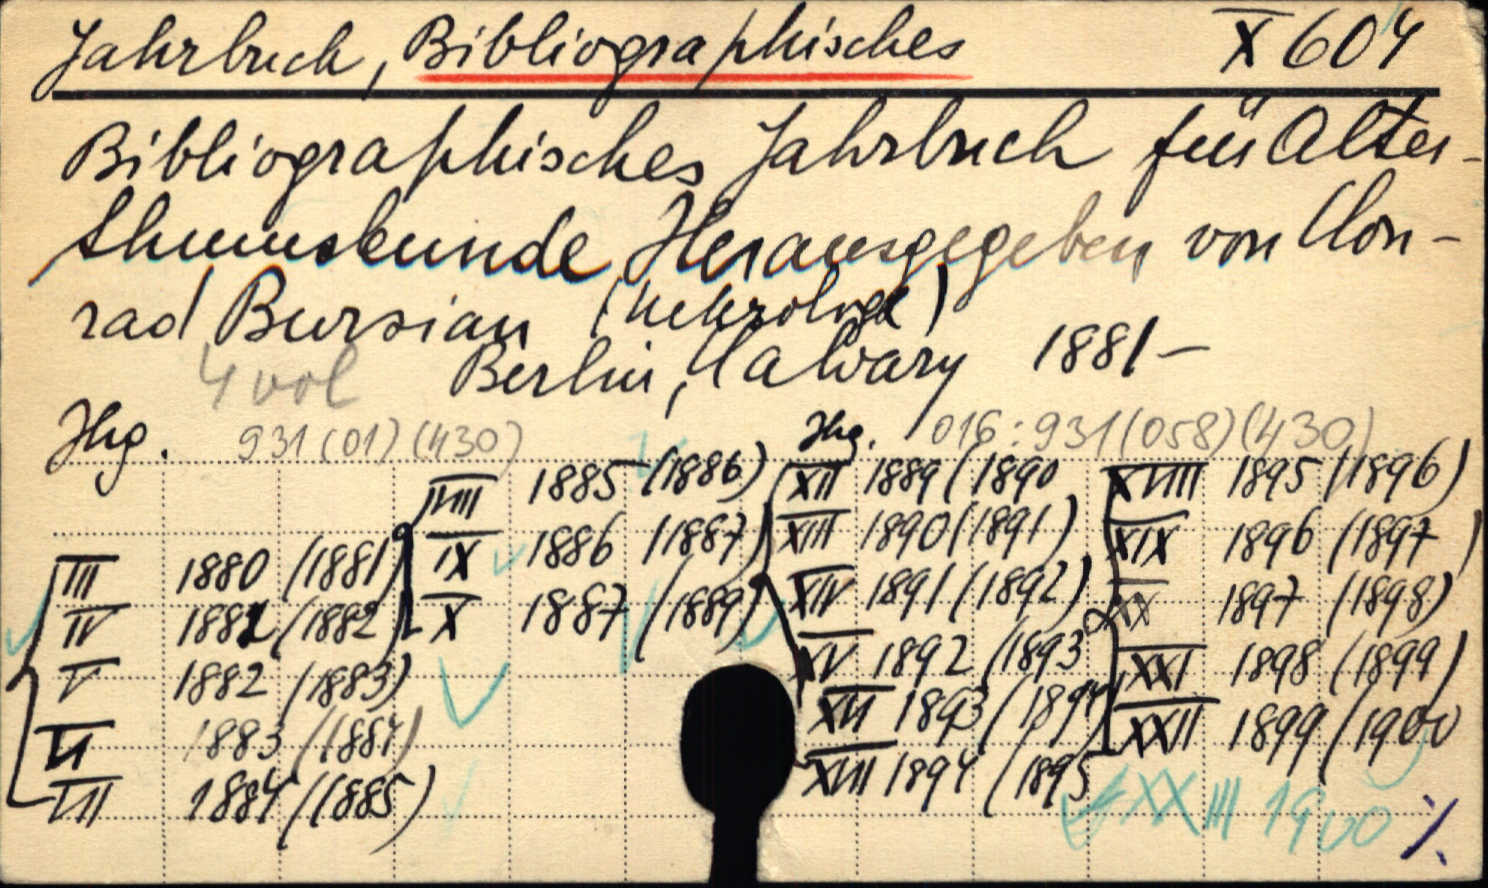 Jahrbuch, Bibliographisches X 604
Bibliographisches Jahrbuch für Alter-
thumskunde Herausgegeben von Con-
rad Bursian (Nekrologe)
4 vol Berlin, Calvary 1881 –
Jhg. 931 (01) (430) Jhg. 016:931(058)(430)
III 1880 (1881)
IV 1881 (1882)
V 1882 (1883)
VI 1883 (1884)
VII 1884 (1885)
VIII 1885 (1886)
IX 1886 (1887)
X 1887 (1889)
XII 1889 (1890
XIII 1890 (1891)
XIV 1891 (1892)
XV 1892 (1893
XVI 1893 (1894)
XVII 1894 (1895
XVIII 1895 (1896)
XIX 1896 (1897)
XX 1897 (1898)
XXI 1898 (1899)
XXII 1899 (1900
XXIII 1900 ./.